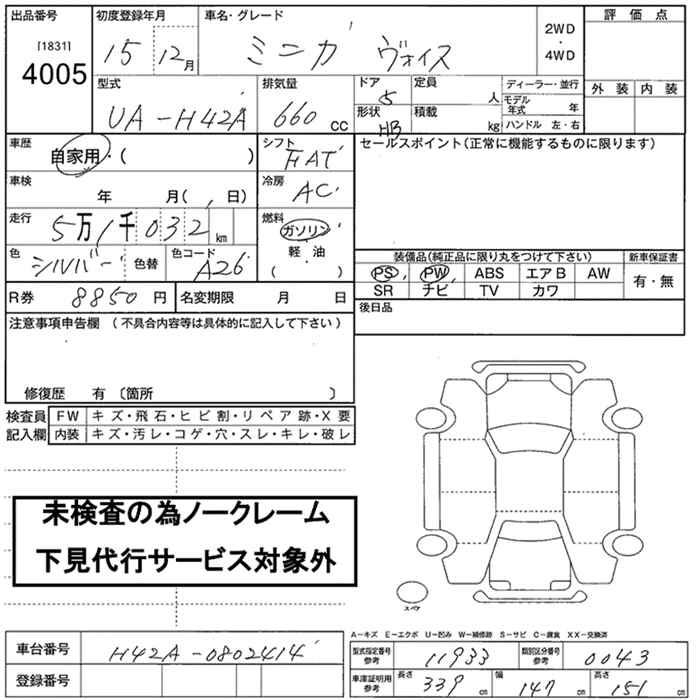 出品番号 初度登録年月 車名・グレード 評価点
[1831] 4005
15 12月 ミニカ ヴォイス 2WD ・ 4WD
型式 排気量 ドア 定員 ディーラー・並行 外装 内装
UA-H42A 660cc 5 人 モデル年式 年
形状 HB 積載 kg ハンドル 左・右
車歴 自家用・( ) シフト FAT セールスポイント(正常に機能するものに限ります)
車検 年 月( 日) 冷房 AC
走行 5万1千032km 燃料 ガソリン
軽・油
( )
色 シルバー 色替 色コード A26
装備品(純正品に限り丸をつけて下さい) 新車保証書
PS PW ABS エアB AW 有・無
SR チビ TV カワ
R券 8850円 名変期限 月 日 後日品
注意事項申告欄 (不具合内容等は具体的に記入して下さい)
修復歴 有 〔箇所 〕
検査員記入欄 FW キズ・飛石・ヒビ割・リペア跡・X要
内装 キズ・汚レ・コゲ・穴・スレ・キレ・破レ
未検査の為ノークレーム
下見代行サービス対象外
スペヤ
A-キズ E-エクボ U-凹み W-補修跡 S-サビ C-腐食 XX-交換済
車台番号 H42A-0802414
登録番号
型式指定番号参考 11933 類別区分番号参考 0043
車庫証明用参考 長さ 339cm 幅 147cm 高さ 151cm